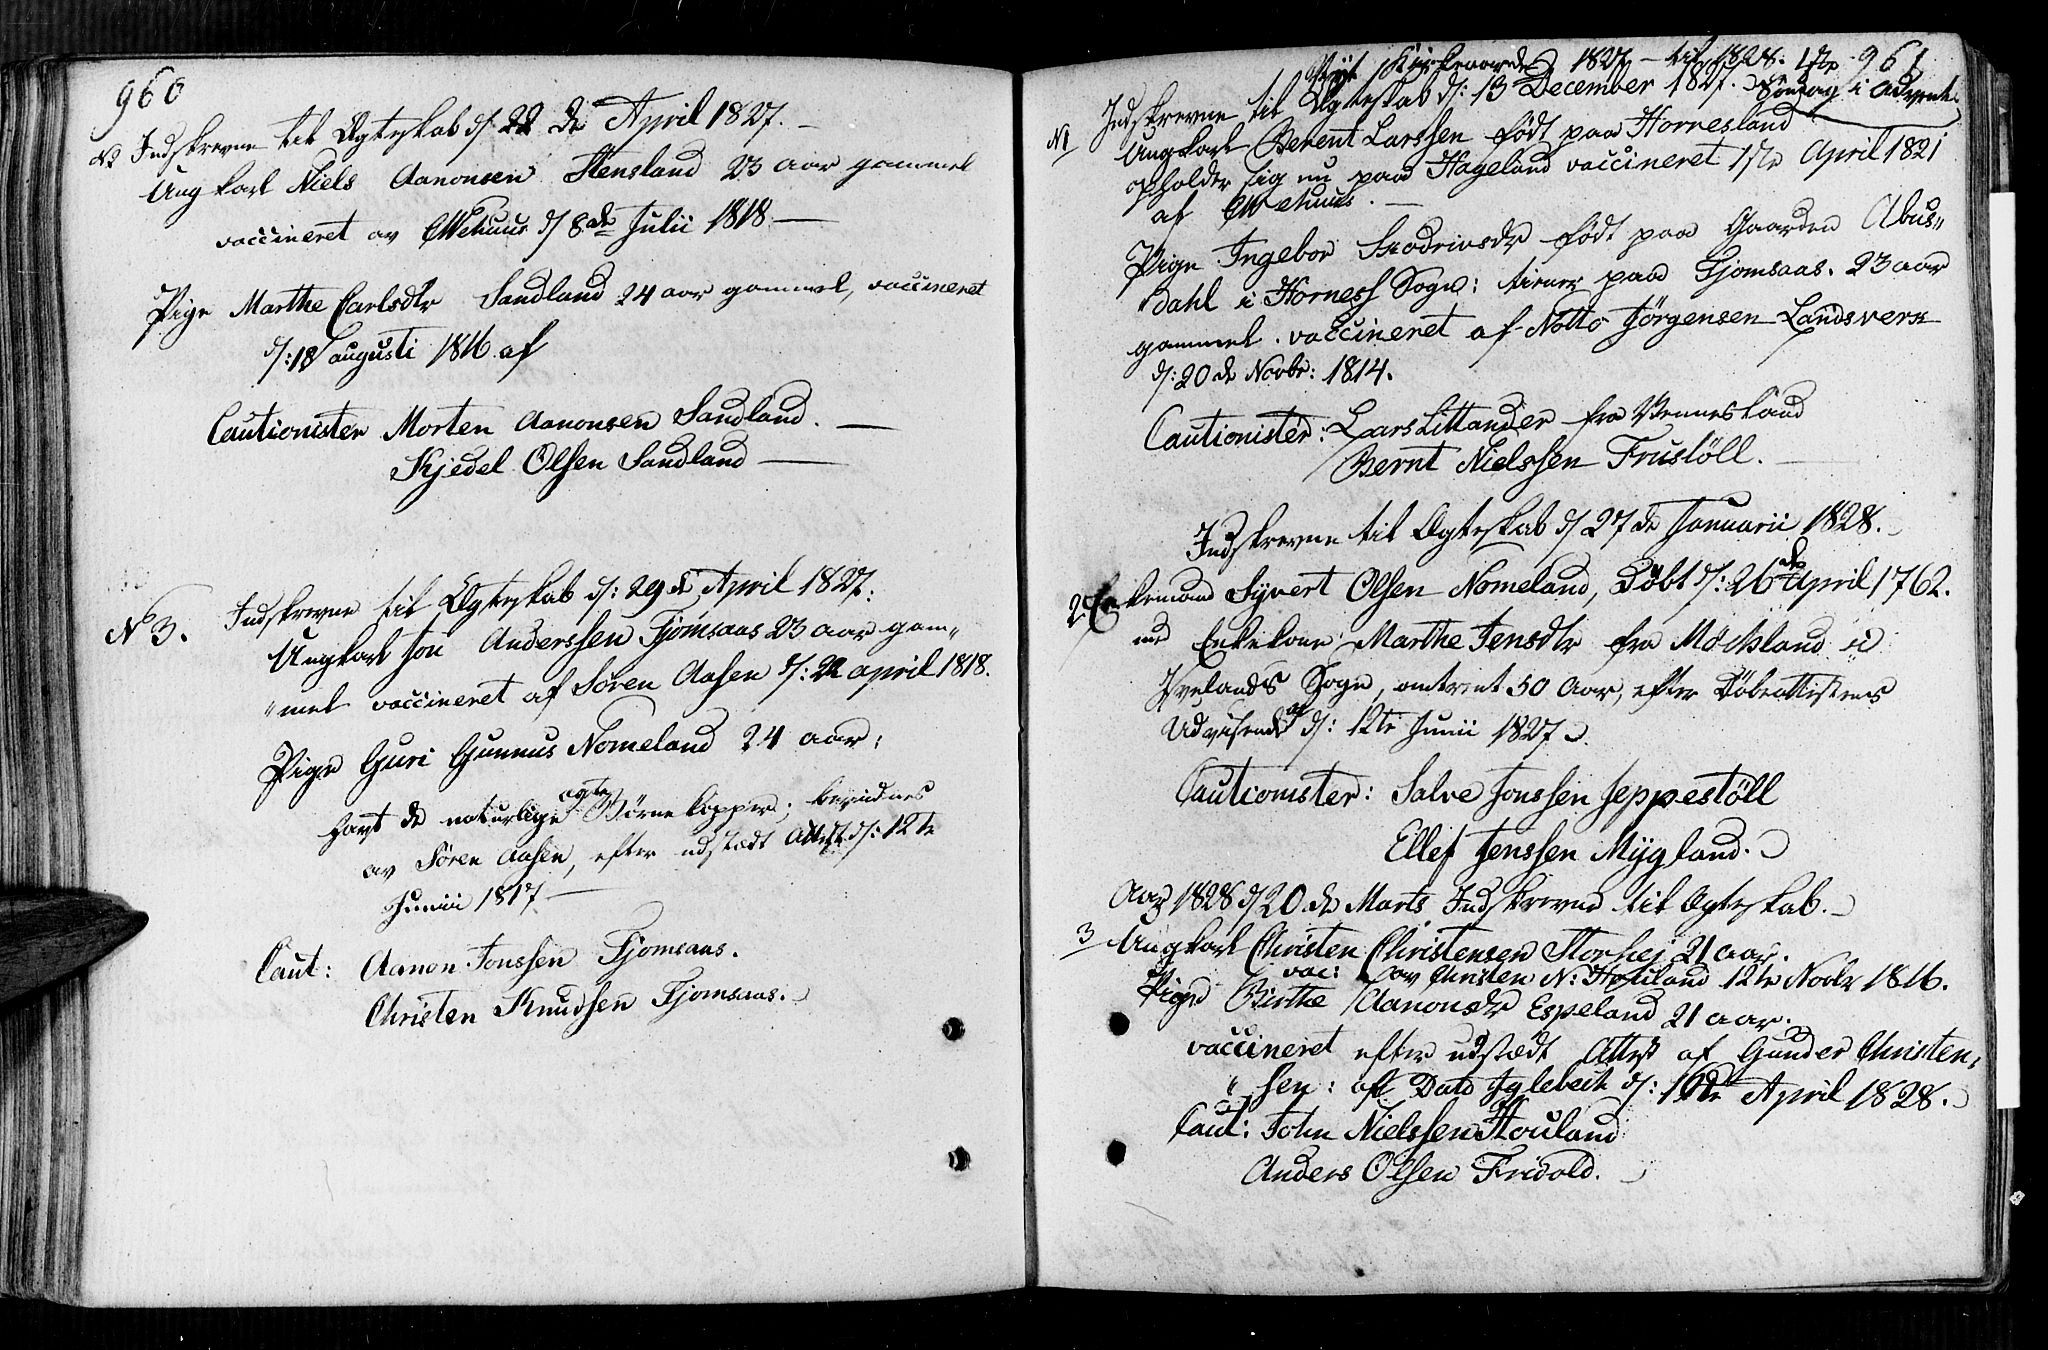 960
N2 Indskrevne til Ægteskab d/ 22 de April 1827.
Ungkarl Niels Aanonsen Stensland 23 aar gammel
vaccineret av d/ 8de Julii 1818
Pige Marthe Carlsdtr Sandland 24 aar gammel, vaccineret
d/: 18 augusti 1816 af
Cautionister Morten Aanonsen Sandland.
Kjedel Olsen Sandland
N 3. Indskrevne til Ægteskab d/: 29 d. April 1827.
Ungkarl Jon Anderssen Fjomsaas 23 aar gam„
„mel vaccineret af Søren Aasen d/: 22 april 1818.
Pige Guri Gunnus Nomeland 24 aar:
Havt de naturlige ægte Børnekopper; bevidnes
av Søren Aasen, efter udstædt Attest d/: 12te
Junii 1817
Caut: Aanon Jonssen Fjomsaas.
Christen Knudsen Fjomsaas.
961
Nyt Kirkeaaret 1827 – til 1828. 1ste
Søndag i Advent.
N1 Indskrevne til Ægteskab d/: 13 December 1827.
Ungkarl Berent Larssen født paa Hornesland
opholder sig nu paa Hageland vaccineret 1ste April 1821
af
Pige Ingebor født paa Gaarden Abus„
Dahl i Horness Sogn: tiener paa Fjomsaas. 23 aar
gammel. vaccineret af Notto Jörgensen Landsverk
d/: 20 de Novbr: 1814.
Cautionister: Lars Littander fra Vennesland
Bernt Nielssen Frustöll.
Indskrevne til Ægteskab d/ 27 de Januarii 1828.
2 Enkemand Syvert Olsen Nomeland, Döbt d/: 26 de April 1762.
med Enkekone Marthe Jensdtr fra i
Ivelands Sogn, omtrent 50 Aar, efter Döbeattestens
Udvisende af d/: 12te Junii 1827.
Cautionister: Salve Jonssen Jeppestöll
Ellef Jenssen Mÿgland.
Aar 1828 d/ 20 de Marts Indskrevne til Ægteskab.
3 Ungkarl Christen Christensen Storhej 21 aar.
vac: av Christen N: Houland 12te Novbr 1816.
Pige Birthe Aanonsdr Espeland 21 aar.
vaccineret efter udstædt Attest af Gunder Christen„
„sen: af Dato Iglebeck d/: 16de April 1828.
Caut: John Nielssen Houland
Anders Olsen Fridold.